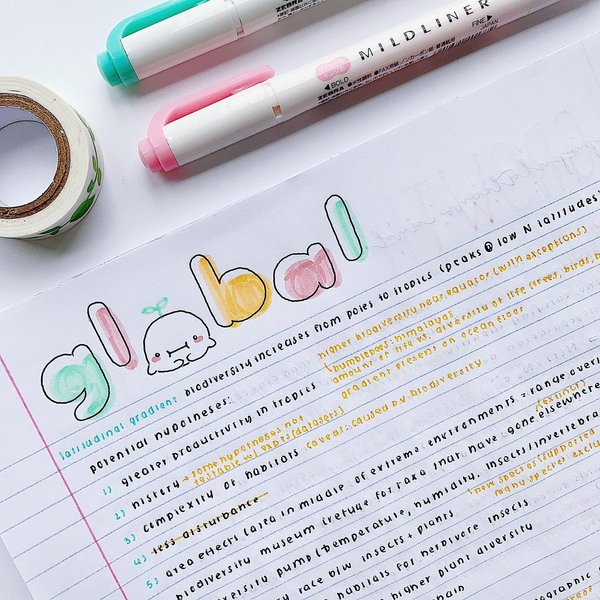 ZEBRA
MILDLINER
FINE
JAPAN
BOLD
ZEBRA
global
latitudinal gradient: biodiversity increases from poles to tropics (peaks @ low N latitudes)
higher biodiversity near equator (with exceptions)
↳bumblebees: himalayas
amount of life vs. diversity of life (trees, birds, b
gradient present on ocean floor
potential hypotheses:
1) greater productivity in tropics
2) history → some hypotheses not
testable w/ expts (datasets)
caveat: caused by biodiversity
3) complexity of habitats
4) less disturbance
5) area effects (area in middle of extreme environments → range overl
biodiversity museum (refuge for taxa that have gone elsewhere
(extinct)
ersity pump (temperature, humidity, insects/invertebra
↳new species (supported
many species exclu
y race b/w insects + plants
habitats for herbivore insects
higher plant diversity